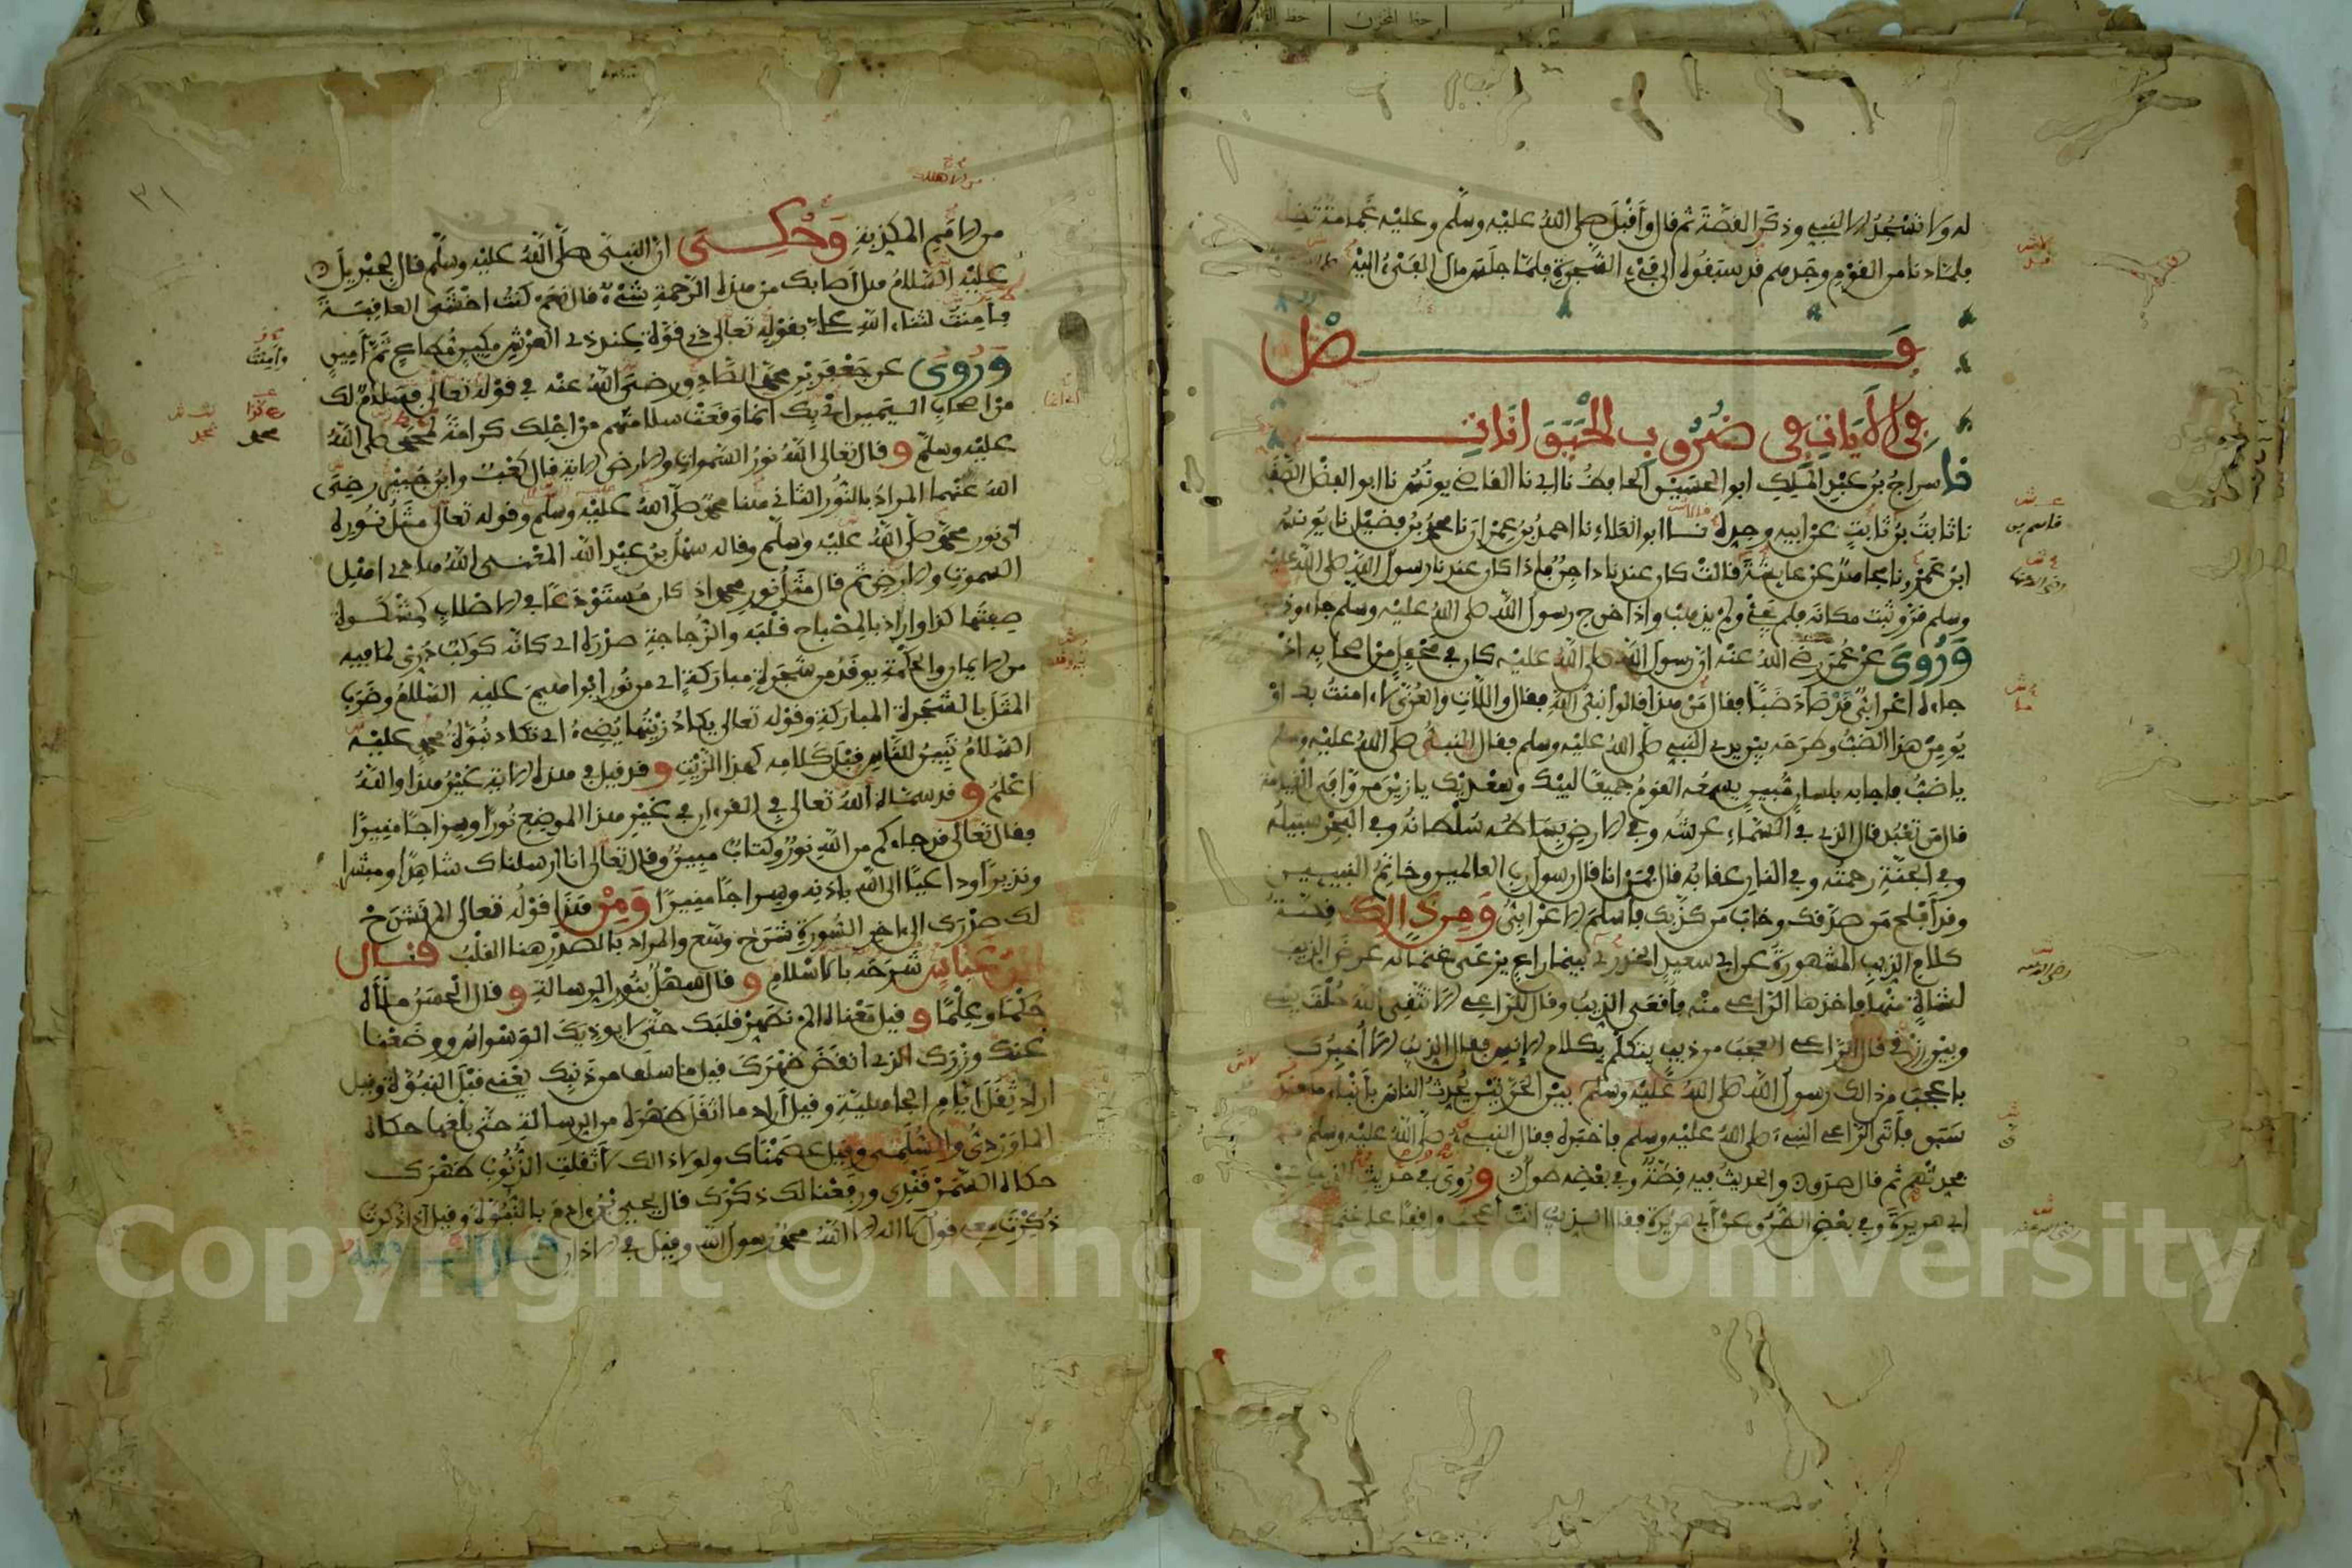 له ولا تسجد الا لنبي وذكر القصة ثم قال وأقبل صلى الله عليه وسلم وعليه غمامة تظله
فلما دنا من القوم وجدهم قد سبقوه الى فيء الشجرة فلما جلس مال الفيء اليه
فصل
في الآيات في ضروب الحيوانات
نا سراج بن عبد الملك ابو الحسين الحافظ نا ابي نا القاضي يونس نا ابو الفضل الصقلي
نا ثابت بن قاسم بن ثابت عن ابيه وجده نا ابو العلاء نا احمد بن عمران نا محمد بن فضيل نا يونس
ابن عمرو نا مجاهد عن عايشة قالت كان عندنا داجن فاذا كان عندنا رسول الله صلى الله عليه
وسلم قر وثبت مكانه فلم يجئ ولم يذهب واذا خرج رسول الله صلى الله عليه وسلم جاء وذهب
وروي عن عمر رضي الله عنه ان رسول الله صلى الله عليه كان في محفل من اصحابه اذ
جاءه اعرابي قد صاد ضبا فقال من هذا قالوا نبي الله فقال واللات والعزى لا ءامنت بك او
يومن هذا الضب وطرحه بين يدي النبي صلى الله عليه وسلم فقال النبي صلى الله عليه وسلم
يا ضب فاجابه بلسان مبين يسمعه القوم جميعا لبيك وسعديك يا زين من وافى القيامة
قال من تعبد قال الذي في السماء عرشه وفي الارض سلطانه وفي البحر سبيله
وفي الجنة رحمته وفي النار عقابه قال فمن انا قال رسول رب العالمين وخاتم النبيين
وقد أفلح من صدقك وخاب من كذبك فأسلم الاعرابي ومن ذالك قصة
كلام الذيب المشهورة عن ابي سعيد الخدري بينما راع يرعى غنما له عرض الذيب
لشاة منها فاخذها الراعي منه فأقعى الذيب وقال للراعي الا تتقي الله حلت بيني
وبين رزقي قال الراعي العجب من ذيب يتكلم بكلام الانس فقال الذيب الا أخبرك
باعجب من ذالك رسول الله صلى الله عليه وسلم بين الحرتين يحدث الناس بأنباء ما قد
سبق فأتى الراعي النبيء صلى الله عليه وسلم فاخبره فقال النبيء صلى الله عليه وسلم قم
فحدثهم ثم قال صدق والحديث فيه قصة وفي بعضه طول وروي في حديث الذيب عن
ابي هريرة وفي بعض الطرق عن ابي هريرة فقال الذيب انت أعجب واقفا على غنمك
من الامم المكذبة وحكي ان النبي صلى الله عليه وسلم قال لجبريل
عليه السلام هل اصابك من هذه الرحمة شيء قال نعم كنت اخشى العاقبة
فأمنت لثناء الله علي بقوله تعالى ذي قوة عند ذي العرش مكين مطاع ثم أمين
وروي عن جعفر بن محمد الصادق رضي الله عنه في قوله تعالى فسلام لك
من اصحاب اليمين اي بك انما وقعت سلامتهم من اجلك كرامة لمحمد صلى الله
عليه وسلم وقال تعالى الله نور السموات والارض الاية قال كعب وابن جبير رضي
الله عنهما المراد بالنور الثاني هنا محمد صلى الله عليه وسلم وقوله تعالى مثل نوره
أي نور محمد صلى الله عليه وسلم وقاله سهل بن عبد الله المعنى الله هادي اهل
السموات والارض ثم قال مثل نور محمد اذ كان مستودعا في الاصلاب كمشكوة
صفتها كذا واراد بالمصباح قلبه والزجاجة صدره اي كانه كوكب دري لما فيه
من الايمان والحكمة يوقد من شجرة مباركة اي من نور ابراهيم عليه السلام وضرب
المثل بالشجرة المباركة وقوله تعالى يكاد زيتها يضيء اي تكاد نبوة محمد عليه
السلام تبين للناس قبل كلامه كهذا الزيت وقد قيل في هذه الاية غير هذا والله
اعلم وقد سماه الله تعالى في القرءان في غير هذا الموضع نورا وسراجا منيرا
فقال تعالى قد جاءكم من الله نور وكتاب مبين وقال تعالى انا ارسلناك شاهدا ومبشرا
ونذيرا وداعيا الى الله باذنه وسراجا منيرا ومن هذا قوله تعالى الم نشرح
لك صدرك الى اخر السورة شرح وسع والمراد بالصدر هنا القلب قال
ابن عباس شرحه بالاسلام وقال سهل بنور الرسالة وقال الحسن ملأه
حكما وعلما وقيل معناه الم نطهر قلبك حتى لا يوذيك الوسواس ووضعنا
عنك وزرك الذي انقض ظهرك قيل ما سلف من ذنبك يعني قبل النبوة وقيل
اراد ثقل ايام الجاهلية وقيل أراد ما اثقل ظهره من الرسالة حتى بلغها حكاه
الماوردي والسلمي وقيل عصمناك ولولا ذالك لاثقلت الذنوب ظهرك
حكاه السمرقندي ورفعنا لك ذكرك قال يحيى بن ادم بالنبوة وقيل اذا ذكرت
ذكرت معي قول لا اله الا الله محمد رسول الله وقيل في الاذان
Copyright © King Saud University